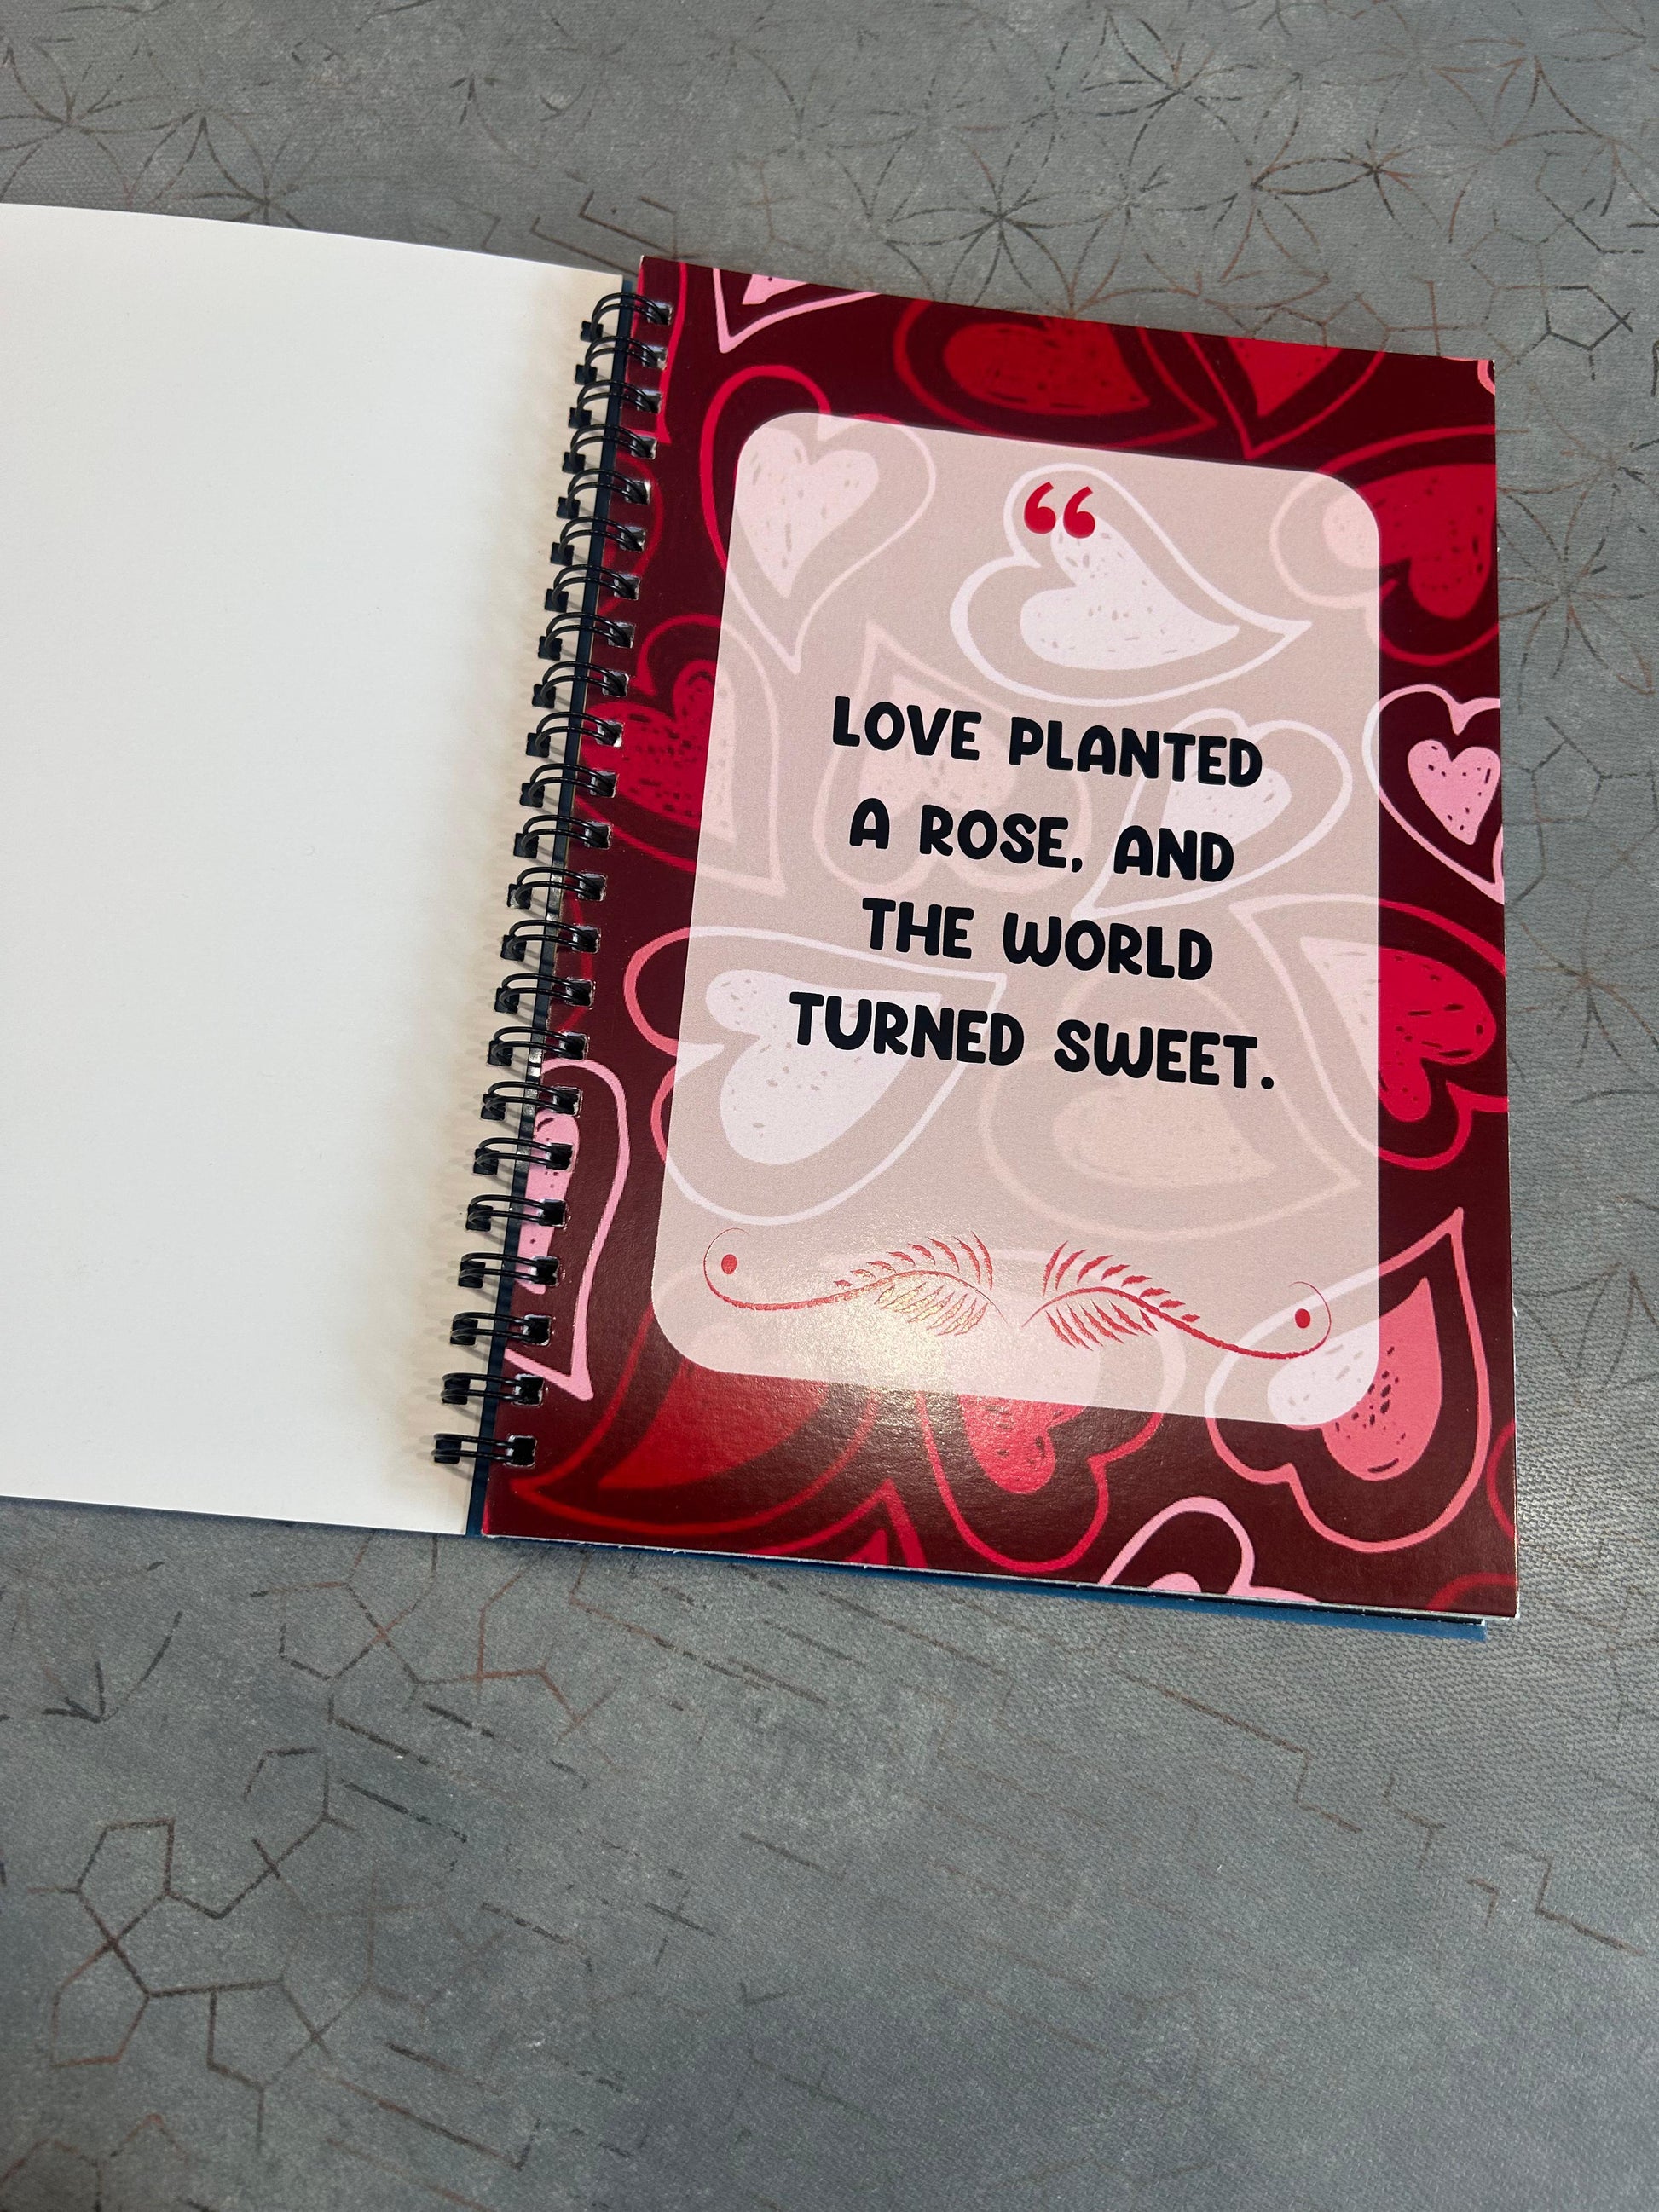 “
LOVE PLANTED
A ROSE, AND
THE WORLD
TURNED SWEET.